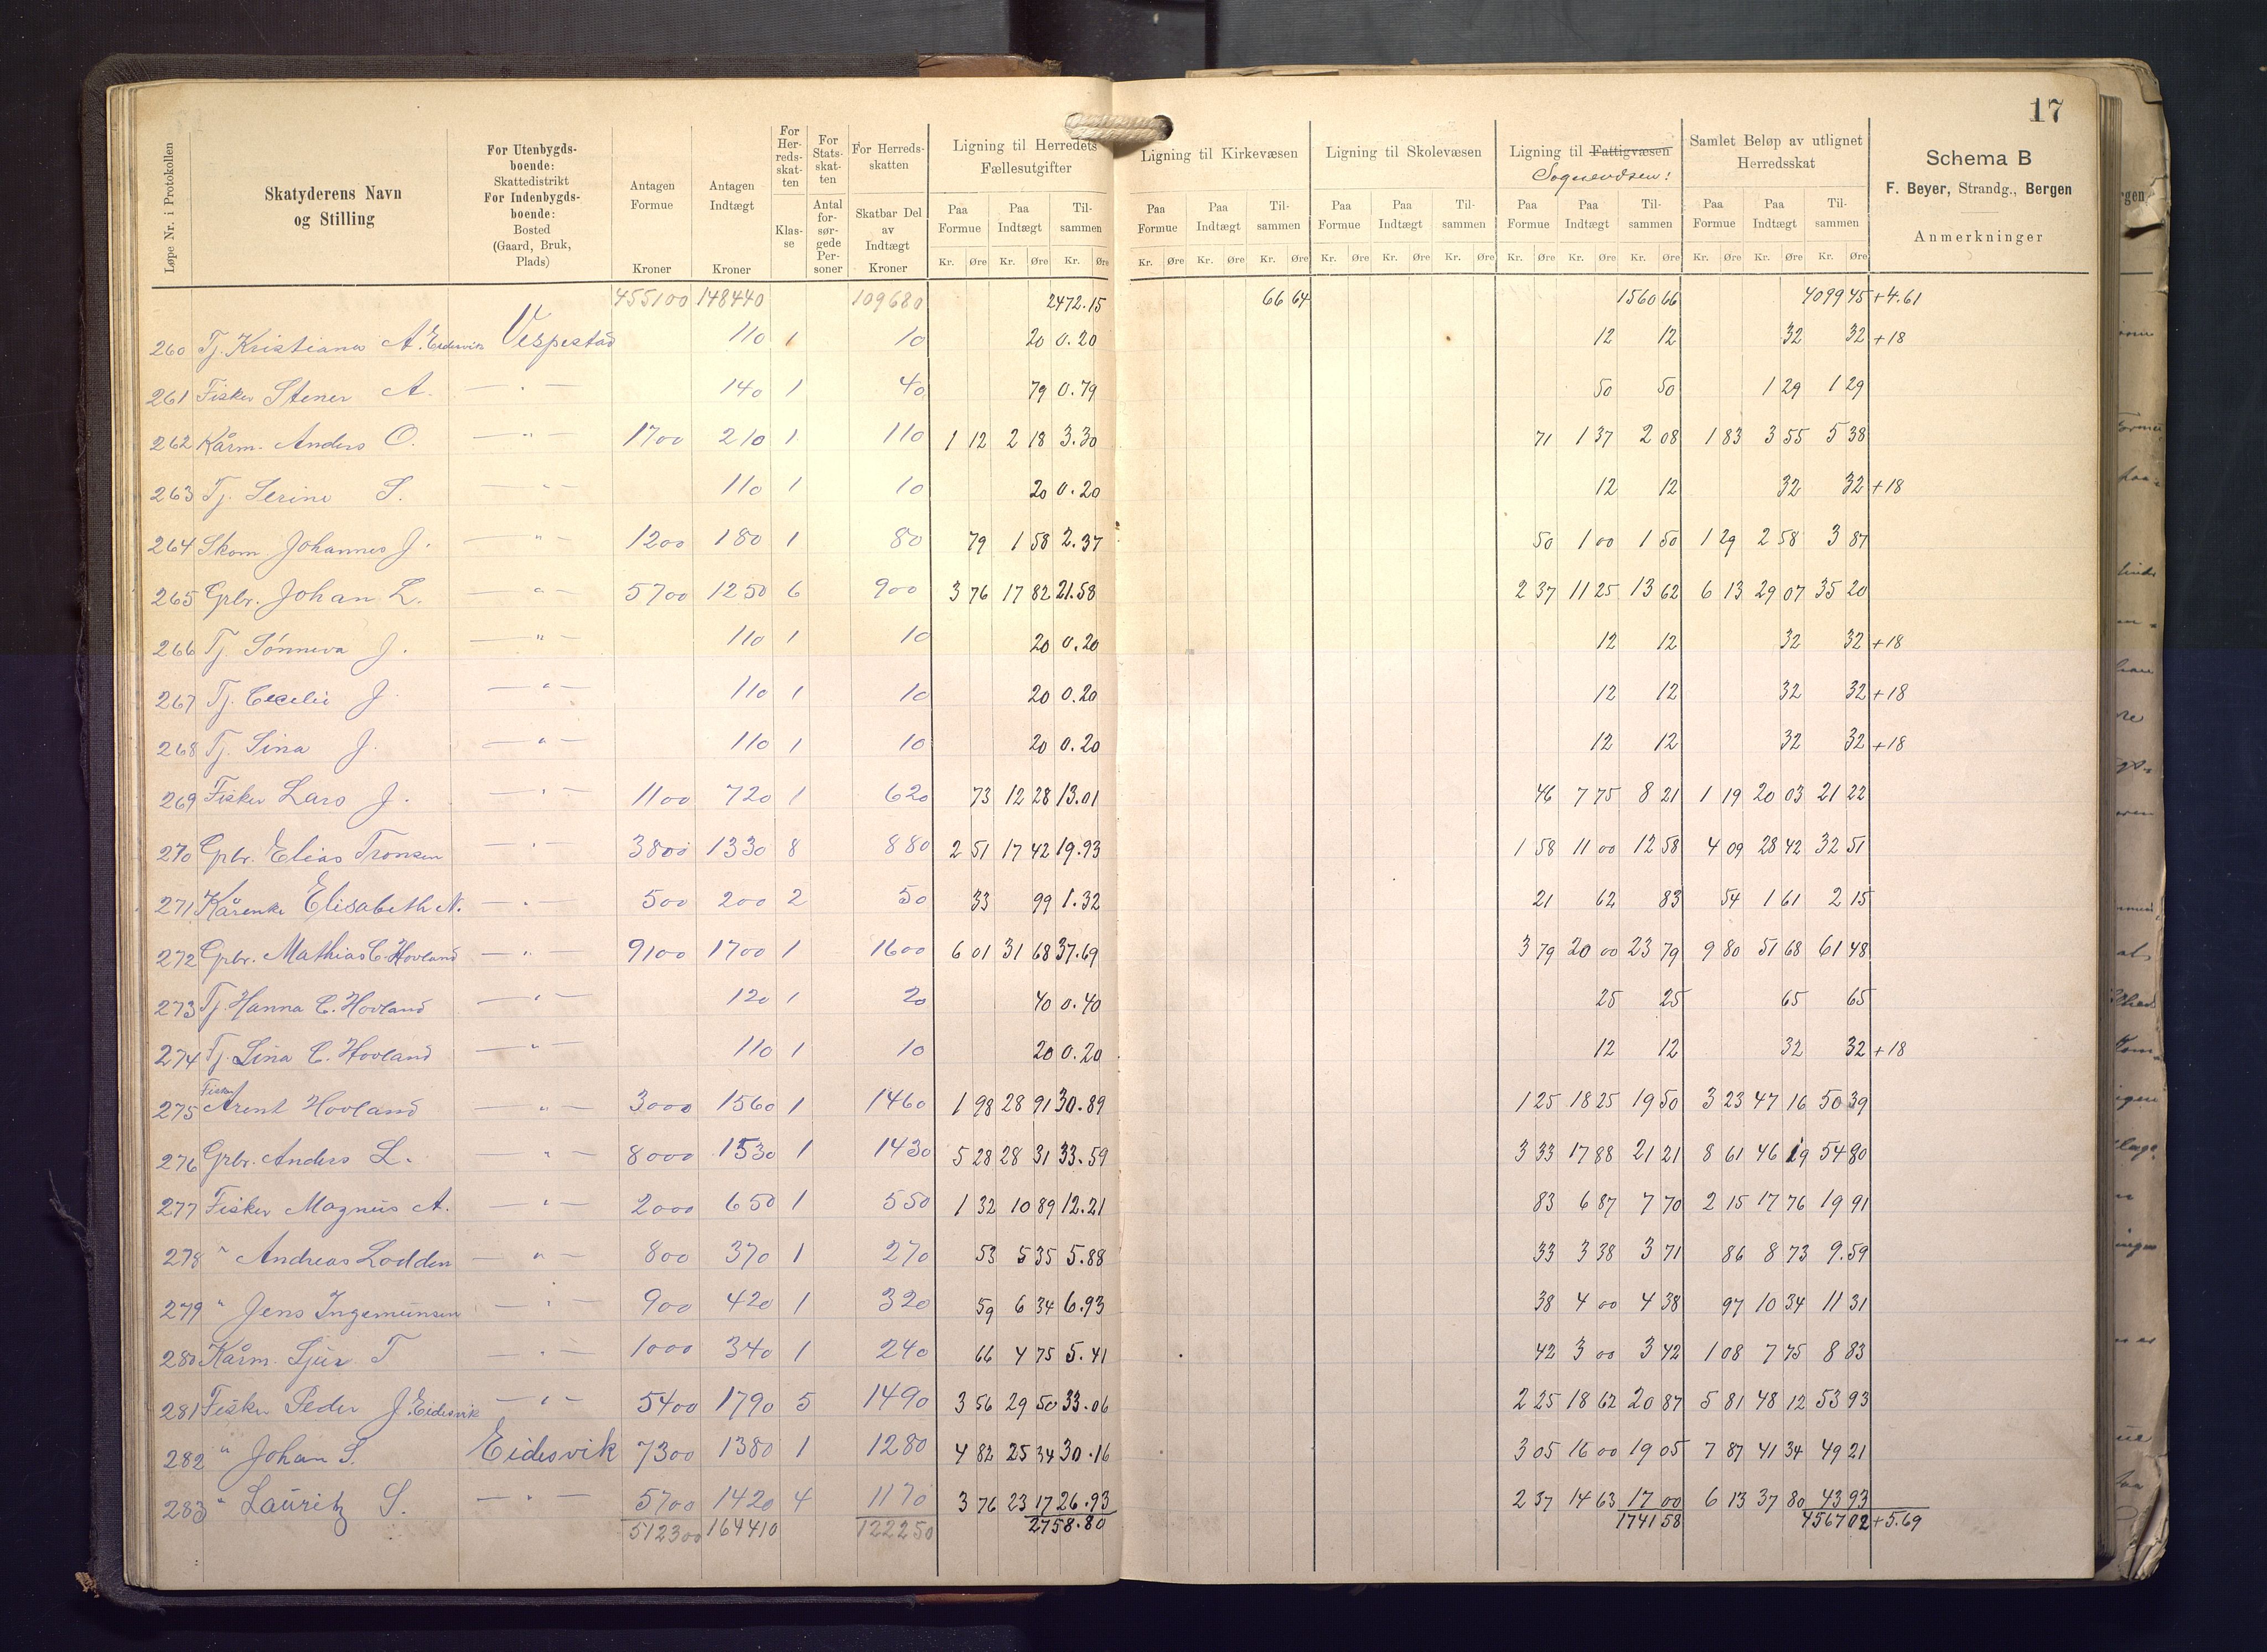 17
Løpe Nr. i Protokollen
Skatyderens Navn og Stilling
For Utenbygds-boende: Skattedistrikt For Indenbygds-boende: Bosted (Gaard, Bruk, Plads)
Antagen Formue Kroner
Antagen Indtægt Kroner
For Her-reds-skat-ten Klas-se
For Stats-skat-ten Antal for-sør-gede Per-soner
For Herreds-skatten Skatbar Del av Indtægt Kroner
Ligning til Herredets Fællesutgifter
Ligning til Kirkevæsen
Ligning til Skolevæsen
Ligning til Fattigvæsen
Samlet Beløp av utlignet Herredsskat
Paa Formue Paa Indtægt Til-sammen Paa Formue Paa Indtægt Til-sammen Paa Formue Paa Indtægt Til-sammen Paa Formue Paa Indtægt Til-sammen Paa Formue Paa Indtægt Til-sammen
Kr. Øre Kr. Øre Kr. Øre Kr. Øre Kr. Øre Kr. Øre Kr. Øre Kr. Øre Kr. Øre Kr. Øre Kr. Øre Kr. Øre Kr. Øre Kr. Øre Kr. Øre
Schema B
F. Beyer, Strandg., Bergen
Anmerkninger
455100 148440 109680 2472.15 66 64 1560 66 4099 45 +4.61
260 Tj. Kristiane A. Eidesvik Vespestad 110 1 10 20 0.20 12 12 32 32 +18
261 Fisker Stener A. — " — 140 1 40 79 0.79 50 50 1 29 1 29
262 Kårm. Anders O. — " — 1700 210 1 110 1 12 2 18 3.30 71 1 37 2 08 1 83 3 55 5 38
263 Tj. Serine S. — " — 110 1 10 20 0.20 12 12 32 32 +18
264 Skom. Johannes J. — " — 1200 180 1 80 79 1 58 2.37 50 1 00 1 50 1 29 2 58 3 87
265 Grbr. Johan L. — " — 5700 1250 6 900 3 76 17 82 21.58 2 37 11 25 13 62 6 13 29 07 35 20
266 Tj. Sønneva J. — " — 110 1 10 20 0.20 12 12 32 32 +18
267 Tj. Cecelie J. — " — 110 1 10 20 0.20 12 12 32 32 +18
268 Tj. Sina J. — " — 110 1 10 20 0.20 12 12 32 32 +18
269 Fisker Lars J. — " — 1100 720 1 620 73 12 28 13.01 46 7 75 8 21 1 19 20 03 21 22
270 Grbr. Elias Tronsen — " — 3800 1330 8 880 2 51 17 42 19.93 1 58 11 00 12 58 4 09 28 42 32 51
271 Kårenke Elisabeth N. — " — 500 200 2 50 33 99 1.32 21 62 83 54 1 61 2 15
272 Grbr. Mathias C. Hovland — " — 9100 1700 1 1600 6 01 31 68 37.69 3 79 20 00 23 79 9 80 51 68 61 48
273 Tj. Hanna C. Hovland — " — 120 1 20 40 0.40 25 25 65 65
274 Tj. Lina C. Hovland — " — 110 1 10 20 0.20 12 12 32 32 +18
275 Fisker Arent Hovland — " — 3000 1560 1 1460 1 98 28 91 30.89 1 25 18 25 19 50 3 23 47 16 50 39
276 Grbr. Anders L. — " — 8000 1530 1 1430 5 28 28 31 33.59 3 33 17 88 21 21 8 61 46 19 54 80
277 Fisker Magnus A. — " — 2000 650 1 550 1 32 10 89 12.21 83 6 87 7 70 2 15 17 76 19 91
278 " Andreas Lodden — " — 800 370 1 270 53 5 35 5.88 33 3 38 3 71 86 8 73 9.59
279 " Jens Ingemunsen — " — 900 420 1 320 59 6 34 6.93 38 4 00 4 38 97 10 34 11 31
280 Kårm. Sjur T — " — 1000 340 1 240 66 4 75 5.41 42 3 00 3 42 1 08 7 75 8 83
281 Fisker Peder J. Eidesvik — " — 5400 1790 5 1490 3 56 29 50 33.06 2 25 18 62 20 87 5 81 48 12 53 93
282 " Johan S. Eidesvik 7300 1380 1 1280 4 82 25 34 30.16 3 05 16 00 19 05 7 87 41 34 49 21
283 " Lauritz S. — " — 5700 1420 4 1170 3 76 23 17 26.93 2 37 14 63 17 00 6 13 37 80 43 93
512300 164410 122250 2758.80 1741 58 4567 02 +5.69